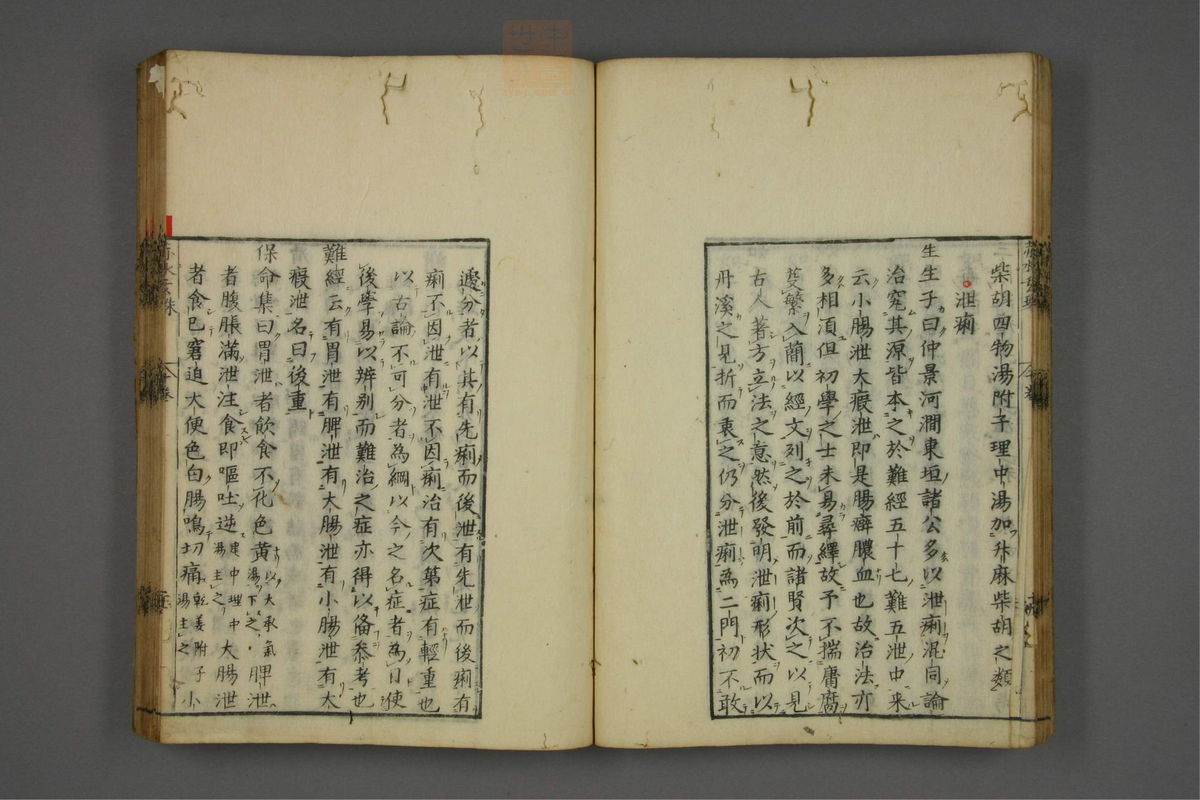 柴胡四物湯附子理中湯加升麻柴胡之類
泄痢
生生子曰仲景河澗東垣諸公多以泄痢混同論
治究其源皆本之於難經五十七難五泄中来
云小腸泄大瘕泄即是腸癖膿血也故治法亦
多相湏但初學之士未易尋繹故予不揣膚腐
芟繁入蕳以經文列之於前而諸賢次之以見
古人著方立法之意然後發明泄痢形状而以
丹溪之見折而衷之仍分泄痢為二門初不敢
遽分者以其有先痢而後泄有先泄而後痢有
痢不因泄有泄不因痢治有次第症有輕重也
以古論不可分者為綱以今之名症者為目使
後學易以辨别而難治之症亦得以俻叅考也
難經云有胃泄有脾泄有大腸泄有小腸泄有大
瘕泄名曰後重
保命集曰胃泄者飲食不化色黄以大承氣湯下之脾泄
者腹脹滿泄注食即嘔吐逆建中理中湯主之大腸泄
者食已窘迫大便色白腸鳴切痛乾姜附子湯主之小